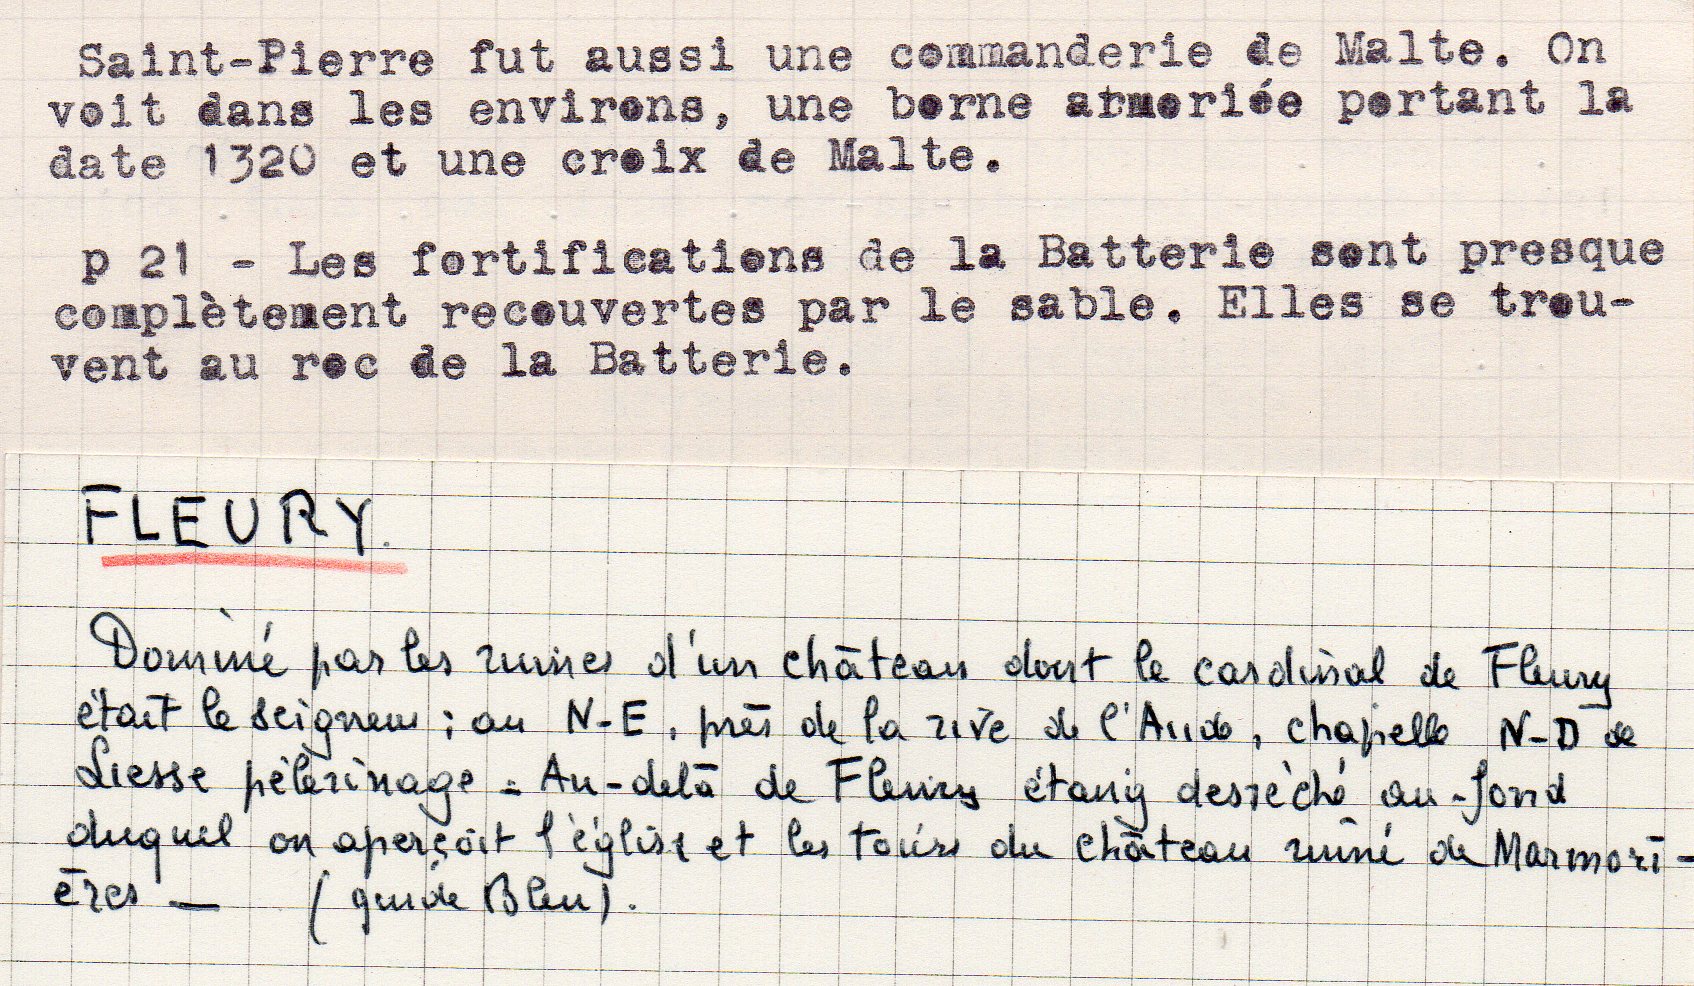 Saint-Pierre fut aussi une commanderie de Malte. On
voit dans les environs, une borne armoriée portant la
date 1320 et une croix de Malte.
p 21 - Les fortifications de la Batterie sont presque
complètement recouvertes par le sable. Elles se trou-
vent au roc de la Batterie.
FLEURY.
Dominé par les ruines d'un château dont le cardinal de Fleury
était le seigneur ; au N-E, près de la rive de l'Aude, chapelle N-D de
Liesse pèlerinage - Au-delà de Fleury étang desséché au-fond
duquel on aperçoit l'église et les tours du château ruiné de Marmori-
ères — (guide Bleu).